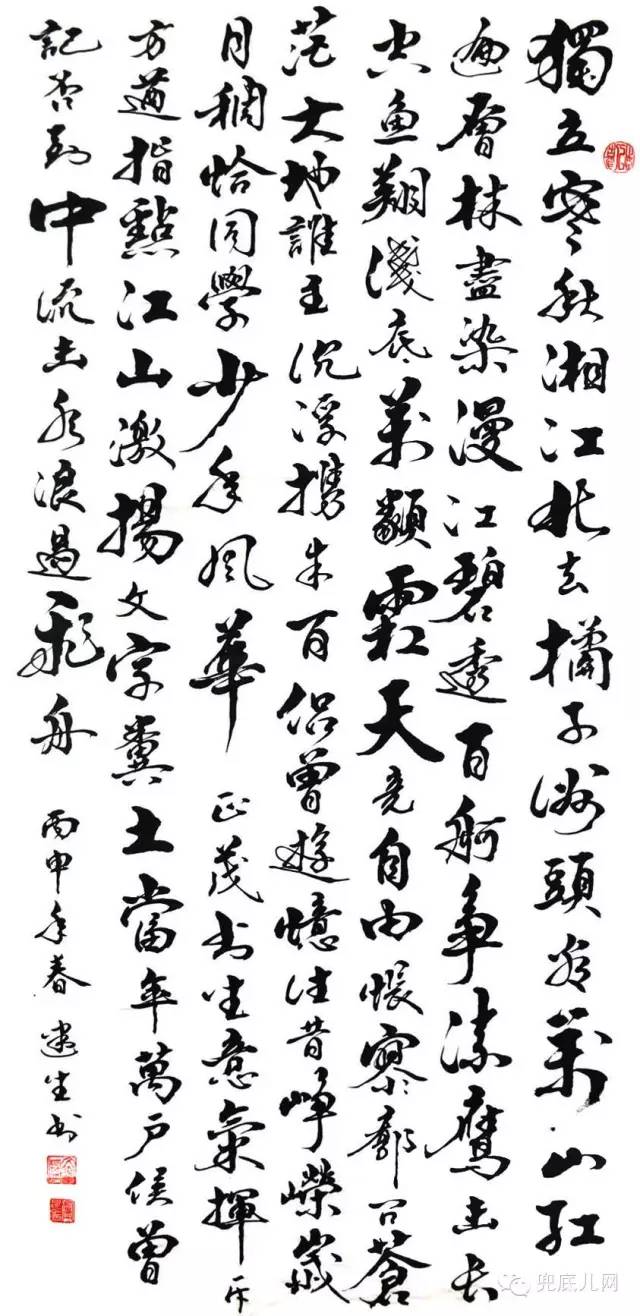 獨立寒秋湘江北去橘子洲頭看萬山红
遍層林盡染漫江碧透百舸争流鹰击长
空鱼翔淺底萬類霜天竞自由悵寥廓问蒼
茫大地誰主沉浮携来百侣曾遊憶往昔峥嶸歲
月稠恰同學少年风華正茂书生意氣揮斥
方遒指點江山激揚文字糞土當年萬户侯曾
記否到中流击水浪遏飛舟
丙申年春 生书
兜底儿网